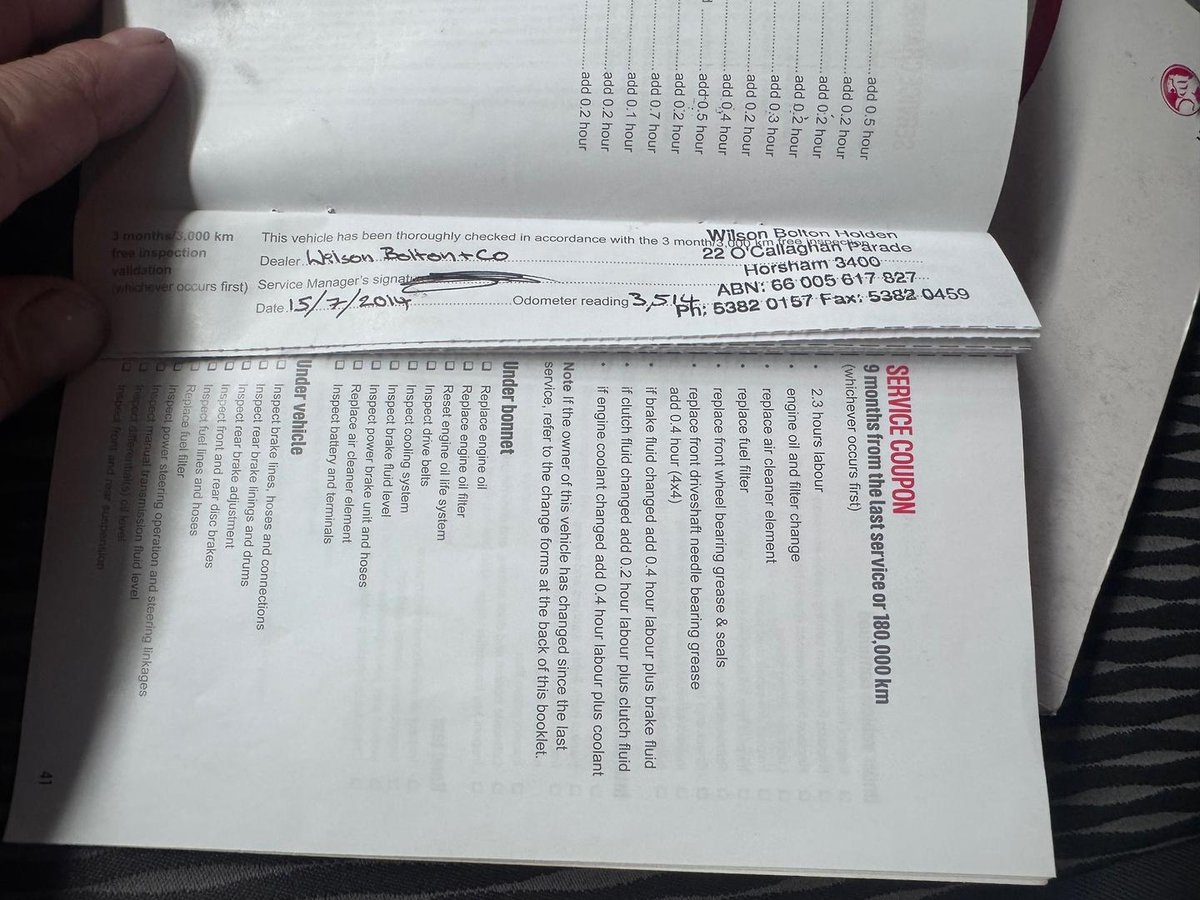 add 0.5 hour
add 0.2 hour
add 0.2 hour
add 0.2 hour
add 0.3 hour
add 0.2 hour
add 0.4 hour
add 0.5 hour
add 0.2 hour
add 0.7 hour
add 0.1 hour
add 0.2 hour
add 0.2 hour
3 months/3,000 km
free inspection
validation
(whichever occurs first)
This vehicle has been thoroughly checked in accordance with the 3 month/3,000 km free inspection
Dealer Wilson Bolton + Co
Service Manager's signature
Date 15/7/2014 Odometer reading 3,514
Wilson Bolton Holden
22 O'Callaghan Parade
Horsham 3400
ABN: 66 005 617 827
Ph: 5382 0157 Fax: 5382 0459
SERVICE COUPON
9 months from the last service or 180,000 km
(whichever occurs first)
• 2.3 hours labour
• engine oil and filter change
• replace air cleaner element
• replace fuel filter
• replace front wheel bearing grease & seals
• replace front driveshaft needle bearing grease
add 0.4 hour (4x4)
• if brake fluid changed add 0.4 hour labour plus brake fluid
• if clutch fluid changed add 0.2 hour labour plus clutch fluid
• if engine coolant changed add 0.4 hour labour plus coolant
Note If the owner of this vehicle has changed since the last
service, refer to the change forms at the back of this booklet.
Under bonnet
Replace engine oil
Replace engine oil filter
Reset engine oil life system
Inspect drive belts
Inspect cooling system
Inspect brake fluid level
Inspect power brake unit and hoses
Replace air cleaner element
Inspect battery and terminals
Under vehicle
Inspect brake lines, hoses and connections
Inspect rear brake linings and drums
Inspect rear brake adjustment
Inspect front and rear disc brakes
Inspect fuel lines and hoses
Replace fuel filter
Inspect power steering operation and steering linkages
Inspect manual transmission fluid level
Inspect differential(s) oil level
Inspect front and rear suspension
41